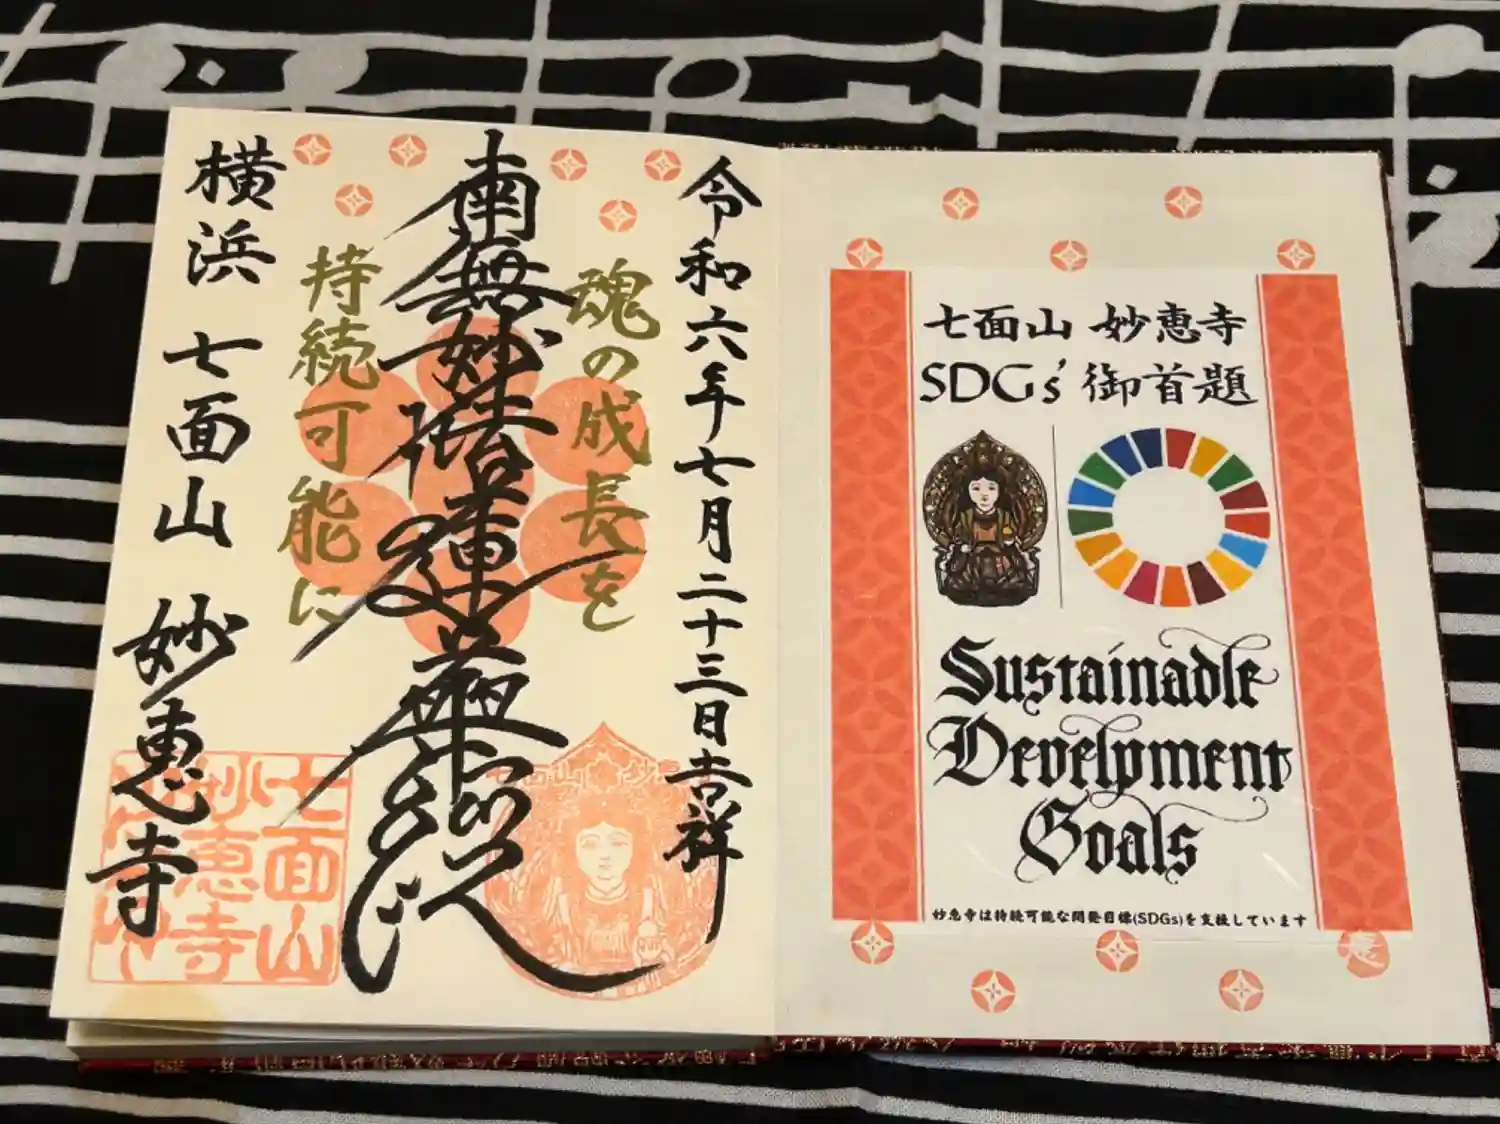 令和六年七月二十三日吉祥
魂の成長を
南無妙法蓮華経
持続可能に
横浜 七面山 妙恵寺
七面山
妙恵寺
七面山 妙恵寺
SDGs' 御首題
Sustainadle
Develpment
Goals
妙恵寺は持続可能な開発目標(SDGs)を支援しています